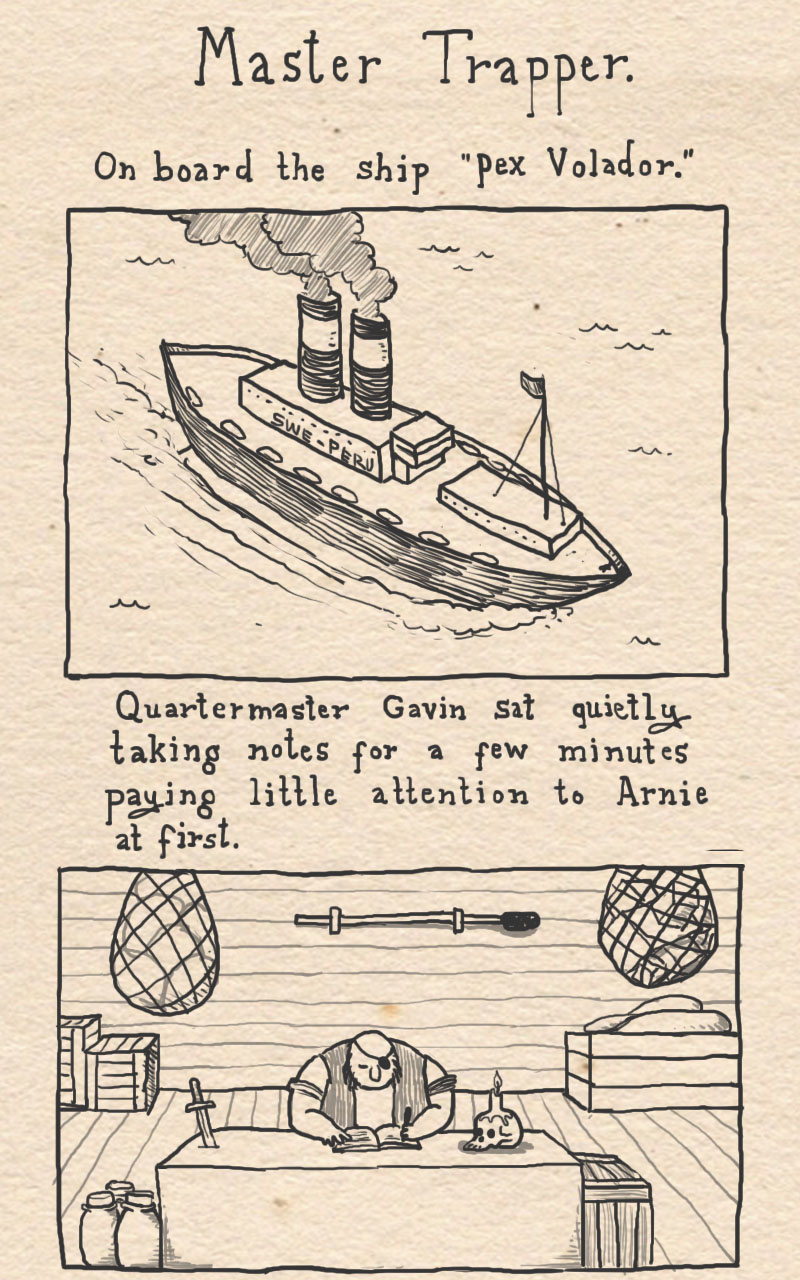 Master Trapper.
On board the ship "Pex Volador."
SWE-PERU
Quartermaster Gavin sat quietly
taking notes for a few minutes
paying little attention to Arnie
at first.